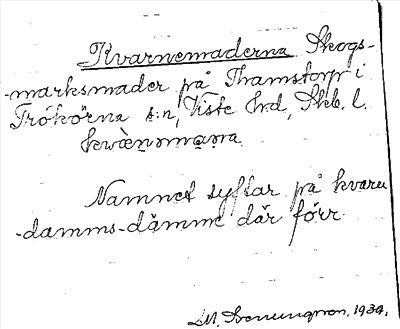 Kvarnemaderna Skogs-
-marksmader på Thamstorp i
Trökörna s:n, Viste hd, Skb. l.
kwæ̀ṇəmạṇa
Namnet syftar på kvarn
-damms-dämme där förr.
M. 1939.